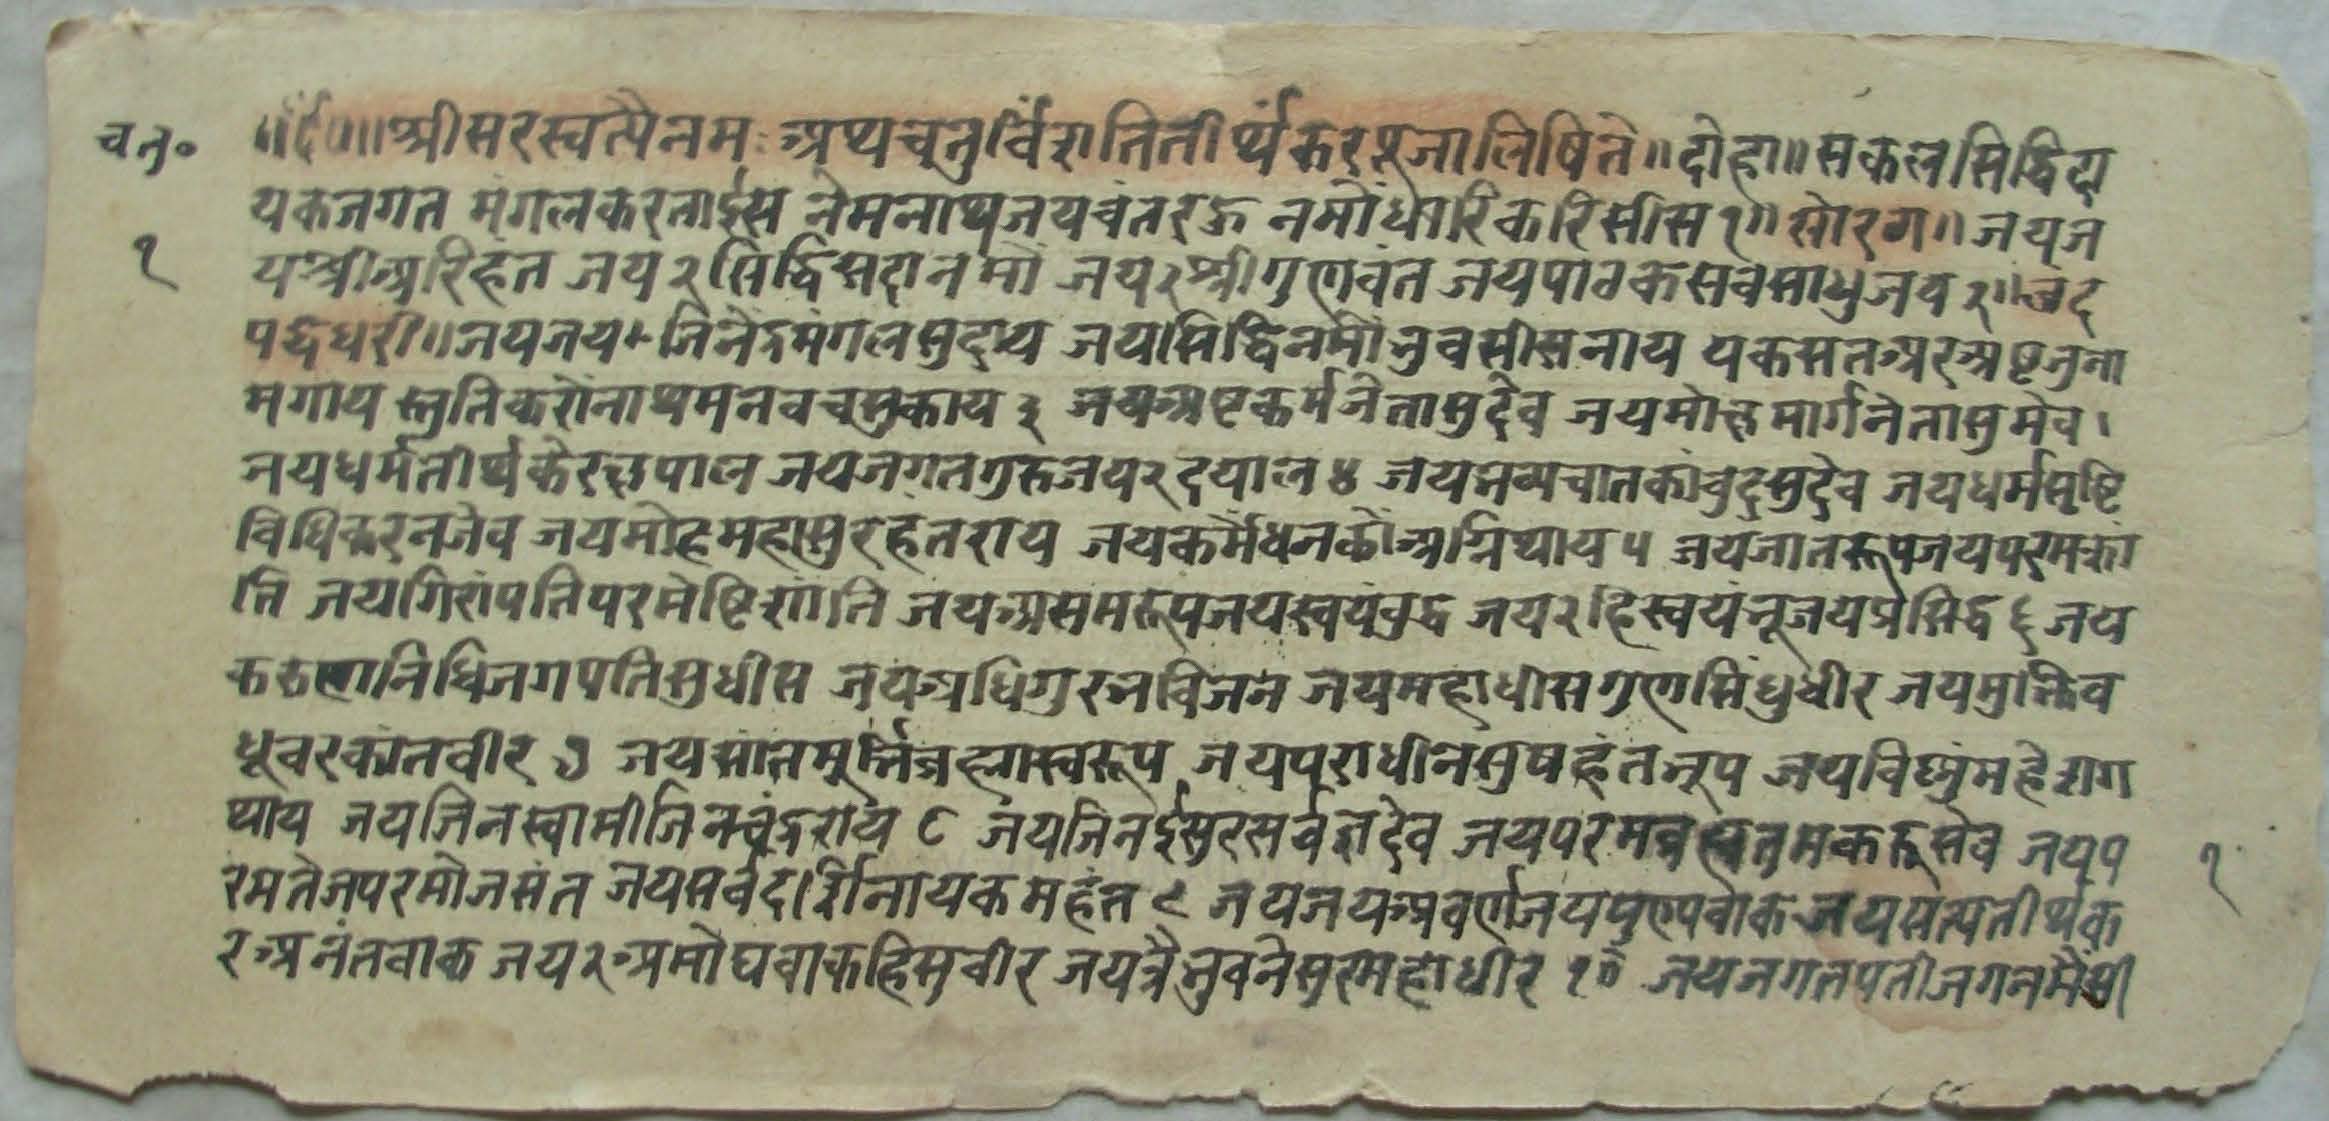 चतु॰
१
॥ॐ॥ श्रीसरस्वत्यैनमः अथचतुर्विंशतितीर्थंकरपूजालिषिते॥ दोहा॥ सकलसिद्धिदा
यकजगत मंगलकरताईस नेमनाथजयवंतरऊ नमोंधारिकरिसीस १॥ सोरठा॥ जयज
यश्रीअरिहंत जय२ सिद्धिसदानमों जय२ श्रीगुणवंत जयपाठकसवसाधुजय २॥
पद्धधरी॥ जयजय जिनेंद्रमंगलसुदाय जयसिद्धिनमोंभुवसीसनाय यकसतअरअष्टजुना
मगाय स्तुतिकरोंनाथमनवचसुकाय ३ जयअष्टकर्मजेतासुदेव जयमोक्षमार्गनेतासुमेव।
जयधर्मतीर्थकेरक्षपाल जयजगतगुरुजय२ दयाल ४ जयभव्यचातकांबुदसुदेव जयधर्मसृष्टि
विधिकरनजेव जयमोहमहासुरहंतराय जयकर्मैंधनकोंअग्निथाय ५ जयजातरूपजयपरमकां
ति जयगिरांपतिपरमेष्टिशांति जयअसमरूपजयस्वयंबुद्ध जय२ हिस्वयंभूजयप्रसिद्ध ६ जय
करुणानिधिजगपतिसुधीस जयअधिगुर जयमहाधीसगुणसिंधुधीर जयमुक्तिव
धूवरकांतवीर ७ जयसांतमुर्त्तिब्रह्मास्वरूप जयपराधीनसुषहंतभूप जयविघ्न
थाय जयजिनस्वामीजिनचंद्रराय ८ जयजिनईसुरसर्वज्ञदेव जयपरम जयप
रमतेजपरमौजसंत जयसर्वदर्शिनायकमहंत ९ जयजयअवर्णजयपुण्यवाक जयसत्यतीर्थक
रअनंतवाक जय२ अमोघवाकहिसुवीर जयत्रैभुवनेसुरमहाधीर १० जयजगतपतीजगनमैंसी
१